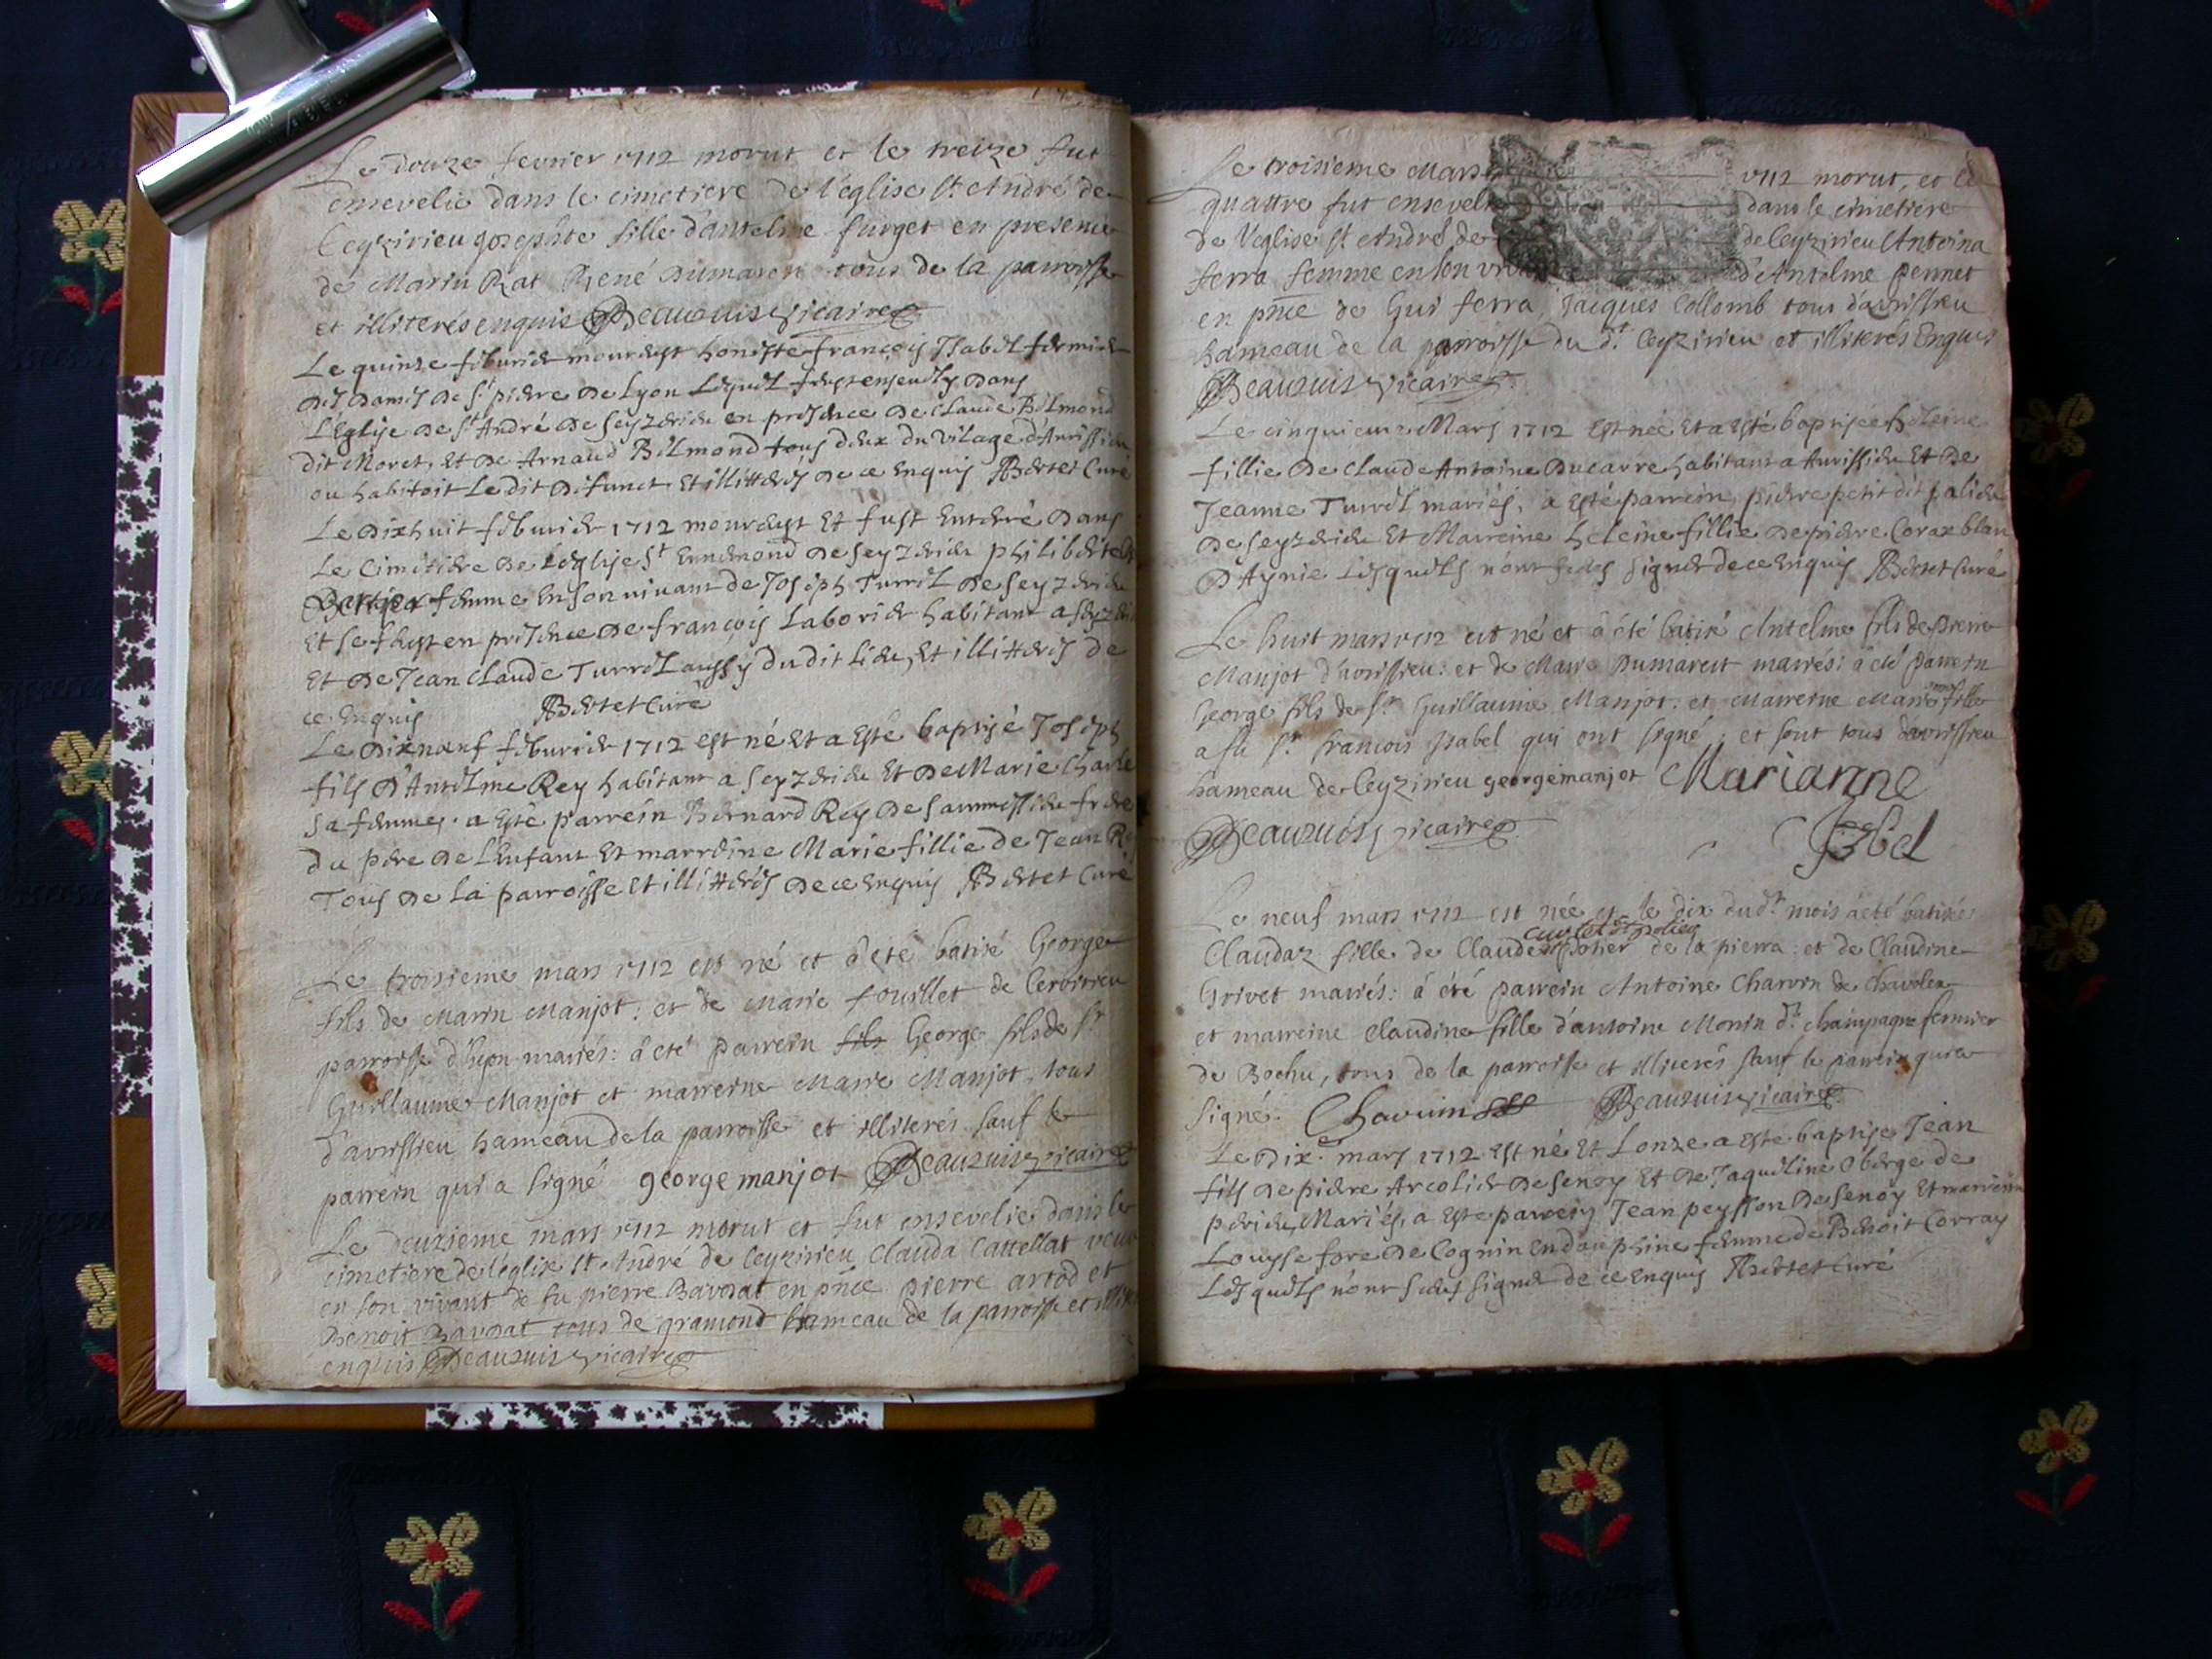 Le douze fevrier 1712 morut et le treize fut
ensevelie dans le cimetiere de l'église St André de
Ceyzirieu Josephte fille d'antelme furget en presence
de Marin Rat René Dumaren tous de la parroisse
et illiterés enquis Beauzuis vicaire
Le quinze feburier mourust honiste françois Isabel fermier
des Dames de St pierre de Lyon Lequel fust enseuely dans
L'Eglise de St André de Seyzerieu en presence de Claude Belmond
dit Moret, Et de Arnaud Belmond tous deux du Vilage d'Aurissieu
ou habitoit Ledit defunct Et illitteres de ce Enquis Bertet Curé
Le dixhuit feburier 1712 mourust Et fust Enterré dans
Le Cimitiere de L'église St Ennemond de Seyzerieu philiberte
femme En son vivant de Joseph Turrel de Seyzerieu
Et Se fust en presence de françois Laborier habitant a Seyzerieu
Et de Jean Claude Turrel aussy du dit Lieu, Et illitteres de
ce Enquis Bertet Curé
Le dixneuf feburier 1712 est né Et a Esté baptisé Joseph
fils D'Antelme Rey habitant a Seyzerieu Et de Marie Charle
sa femme, a Esté parrein Bernard Rey de Sammessieu frere
du pere de L'Enfant Et marreine Marie fillie de Jean
Tous de La parroisse Et illitteres de ce Enquis Bertet Curé
Le troisieme mars 1712 est né et à eté batisé George
fils de Marin Manjot, et de Marie fouillet de Cervirieu
parroisse d'hyon mariés: à eté parrein fils George fils de Sr
Guillaume Manjot et marreine Marie Manjot, tous
d'avrissieu hameau de la parroisse et illiterés sauf le
parrein qui a signé george manjot Beauzuis vicaire
Le deuzieme mars 1712 morut et fut ensevelie dans le
cimetiere de l'église St André de Ceyzirieu Clauda Cattellat
en son vivant de fu pierre Bavozat en pnce pierre artod et
Benoit Bavozat tous de gramond hameau de la parroisse et
enquis Beauzuis vicaire
Le troisieme Mars 1712 morut, et le
quattre fut ensevelie dans le cimetiere
de l'eglise St André de de Ceyzirieu Antoina
ferra femme en son vivant d'Antelme Pennet
en pnce de Gui ferra, Jacques Collomb tous d'avrissieu
hameau de la parroisse du dt Ceyzirieu et illiterés Enquis
Beauzuis vicaire
Le cinquieme Mars 1712 Est née Et a Esté baptisée heleine
fillie de Claude Antoine Ducarre habitant a Aurissieu Et de
Jeanne Turrel mariés, a Esté parrein, pierre petit dit
de Seyzerieu Et Marreine heleine fillie de pierre
D'Aynie Lesquels n'ont Signer de ce Enquis Bertet Curé
Le huit mars 1712 est né et à été batisé Antelme fils de Pierre
Manjot d'avrissieu: et de Marie Dumarest mariés: à eté parrein
George fils de Sr Guillaume Manjot. et Marreine Marianne fille
a fu Sr francois Isabel qui ont signé, et sont tous d'avrissieu
hameau de Ceyzirieu george manjot Marianne
Beauzuis vicaire Isbel
Le neuf mars 1712 est née et le dix du dt mois à eté batisée
Claudaz fille de Claude de la pierra: et de Claudine
Grivet mariés: à été parrein Antoine Charvin de Chavolen
et marreine Claudine fille d'antoine Monin dt. Champagne fermier
de Bochu, tous de la parroisse et illiterés sauf le parrein qui a
Signé. Chavuin Beauzuis vicaire
Le Dix.e mars 1712 Est né Et Lonze a esté baptisé Jean
fils de pierre Arcolier de Senoy Et de Jaqueline Oberge de
Mariés, a Esté parrein Jean peysson de Senoy Et marreine
Louyse de Cognin En dauphine femme de Benoit Corray
Lesquels n'ont Signer de ce Enquis Bertet Curé